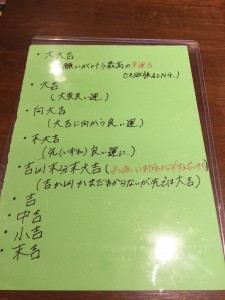 ・大大吉
(願いがかなう最高の幸運
・大吉
(大変良い運)
・向大吉
(大吉に向かう良い運)
・末大吉
(先(いずれ)良い運に)
・吉凶末分末大吉(
(吉か凶かまだわからないが先では大吉)
・吉
・中吉
・小吉
・末吉